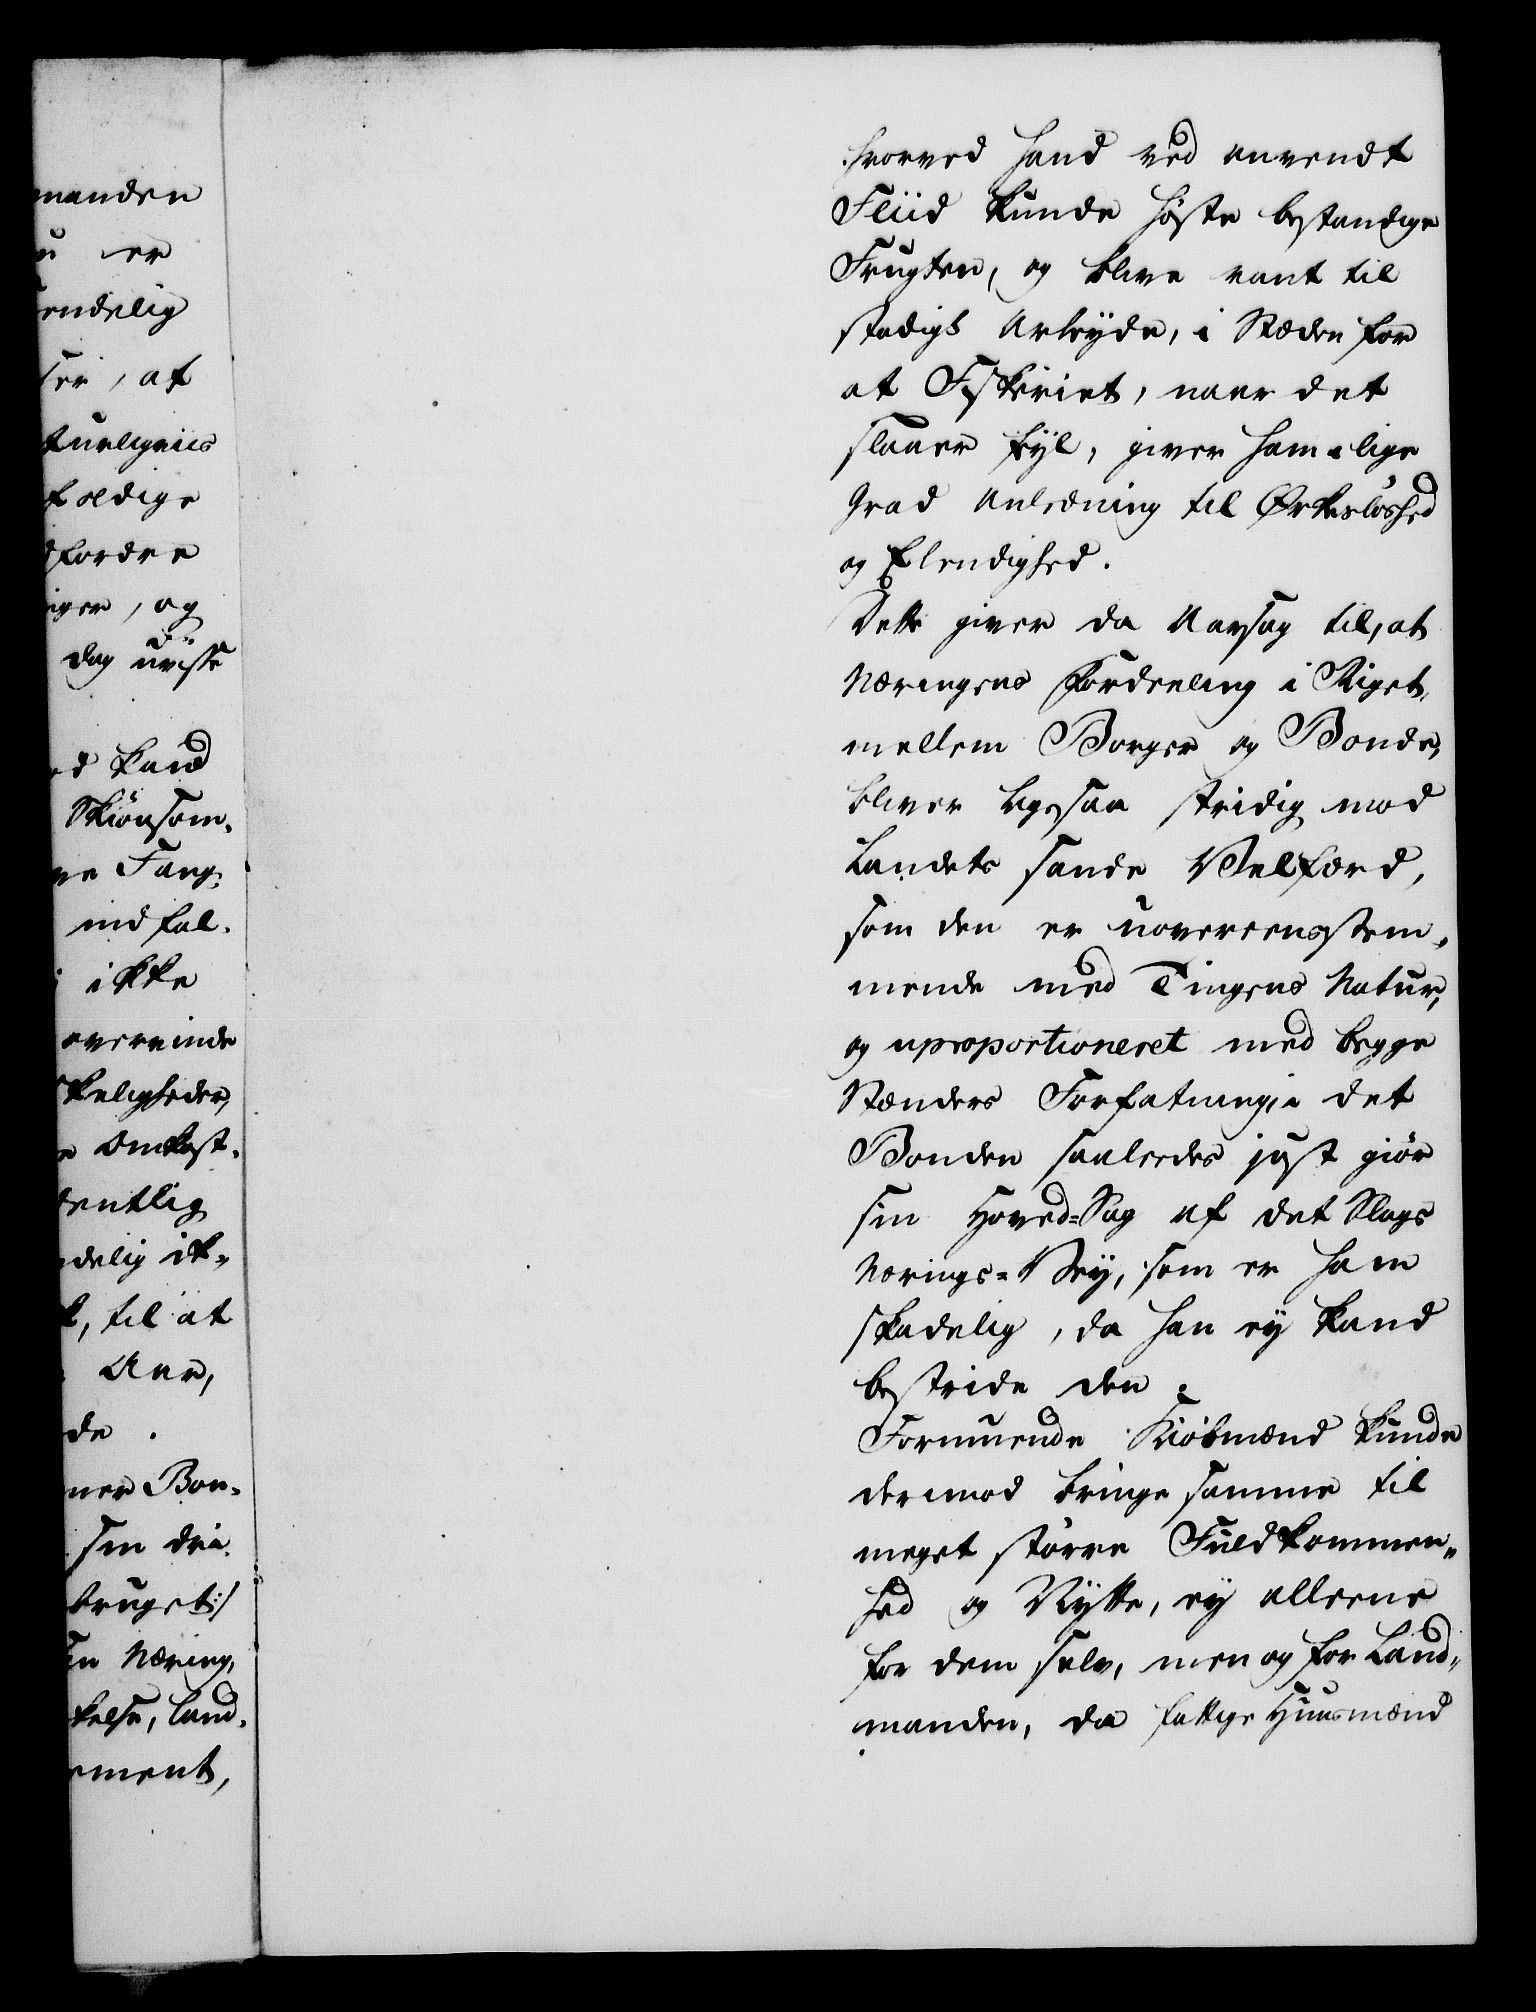 manden
er
endelig
ser, at
turligviis
foldige
fordre
iger, og
dog uvisse
ed kand
Skiønsom-
ve Fang-
indfal-
ikke
overvinde
skeligheder,
Omkost-
dentlig
delig ik-
til at
Aar,
de.
ner Bon-
sin dri-
bruget:/
sin Næring,
kelse, Land-
ement,
hvorved hand ved anvendt
Fliid kunde høste bestandige
Frugter, og blive vant til
stadigt Arbeyde, i Stæden for
at Fiskeriet, naar det
slaaer feyl, giver ham i lige
Grad Anledning til Ørkesløshed
og Elendighed.
Dette giver da Aarsag til, at
Næringens Fordeeling i Riget,
mellem Borger og Bonde,
bliver ligesaa stridig mod
Landets sande Velfærd,
som den er uovereensstem-
mende med Tingens Natur,
og uproportioneret med begge
Stænders Forfatning, i det
Bonden saaledes just giør
sin Hoved-Sag af det Slags
Nærings-Vey, som er ham
skadelig, da han ey kand
bestride den.
Formuende Kiøbmænd kunde
derimod bringe samme til
meget større Fuldkommen-
hed og Nytte, ey alleene
for dem selv, men og for Land-
manden, da fattige Huusmænd